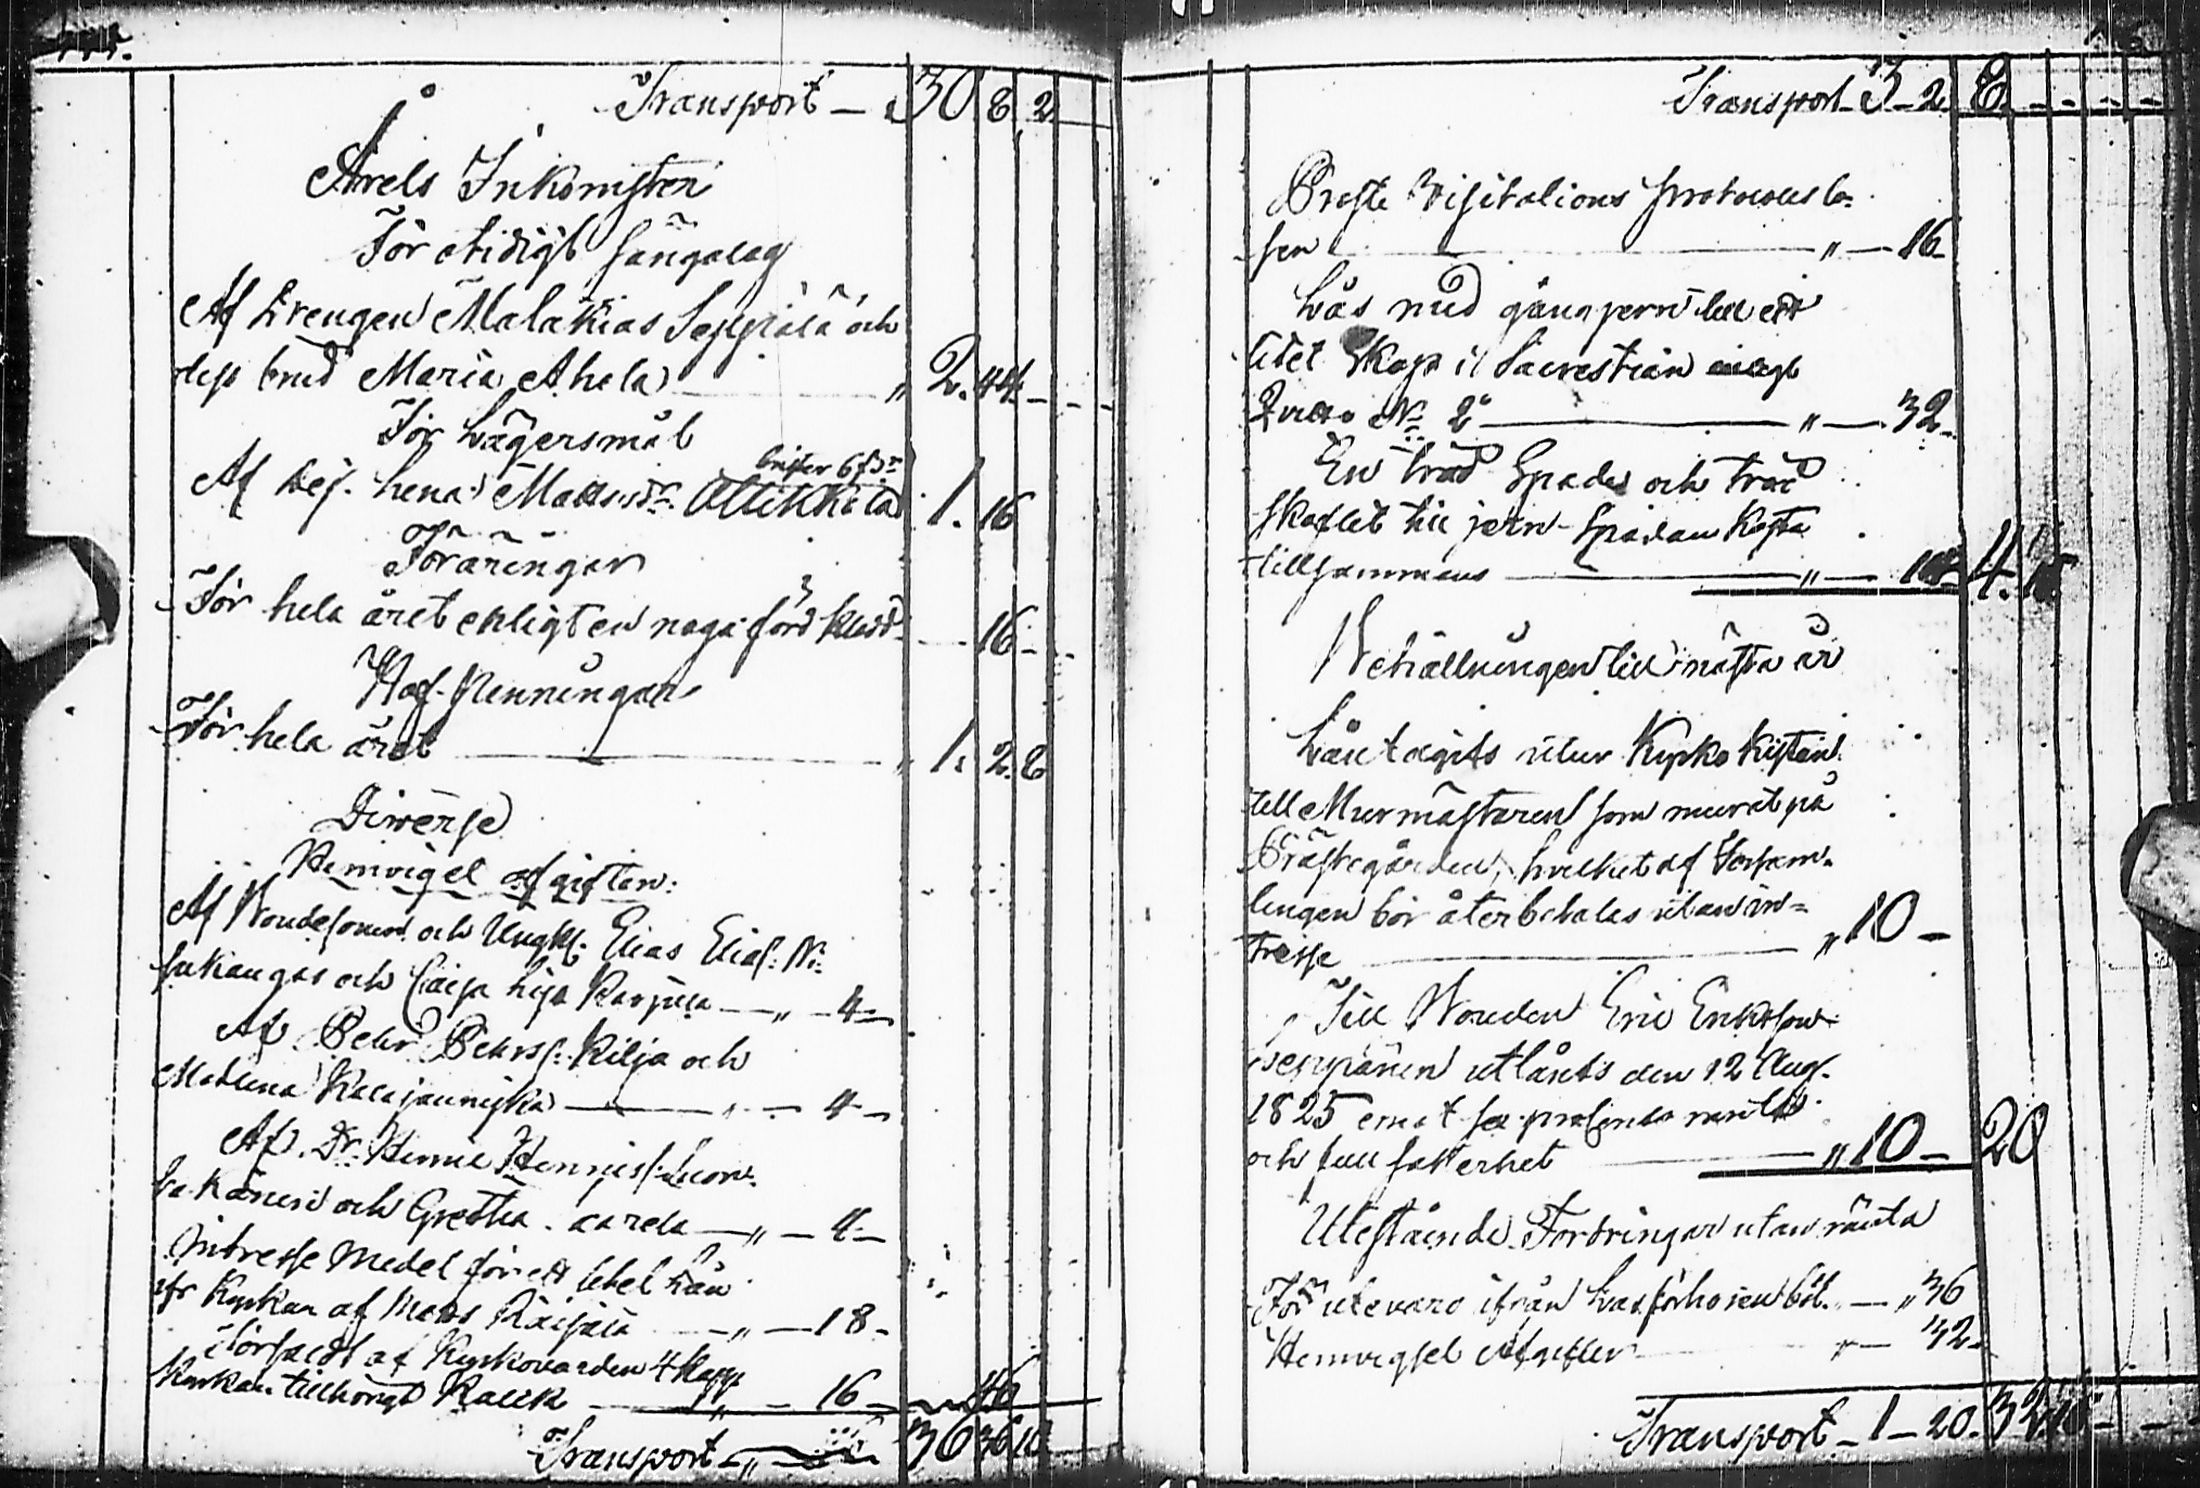 Transport — 30. 8. 2.
Årets Inkomster
För otidigt sängalag
Af Drengen Malakias Seppälä och
dess brud Maria Ahola — „ 2. 44. —
För Lägersmål
brister 6 sk
Af Pig. Lena Mattsdr. Ollikkala 1. 16
Föräringar
För hela året enligt en någ förd kladd — 16 —
Håf-Penningar
För hela året — „ 1. 2. 8
Diverse
Hemvigsel afgifter:
Af Bondesonen och Ungkl. Elias Elias:
kangas och Caisa Lisa Karjula — „ — 4 —
Af Pehr Pehrss: Kilja och
Madlena Kalajanniska — „ — 4 —
Af Dr. Henric Henricss:
och Gretha — „ — 4 —
Intresse Medel för ett litet Lån
ifr Kyrkan af Matts Räihälä — „ — 18 —
Försåldt af Kyrkovärden 4 Kapp.
Kyrkan tillhörigt Kalk — „ — 16 — 46
Transport — „ — 36

Transport — 3 — 2. 8. — — —
Proste Visitations Protocolls lö-
sen — „ — 16 —
Lås med gångjern till ett
litet Skåp i Sacrestian enligt
Quitto No 2 — „ — 32 —
En träd Spade och träd
skaftet till jern-Spadan kosta
tillsammans — „ —
Behållningen till nästa år
Lånt ägits utur Kyrko Kistan
till Murmästaren som murat på
Prästegården, hvilket af Försam-
lingen bör återbetalas utan in-
tresse — „ 10 —
Till Bonden Eric Eriksson
Seppänen utlånts den 12 Aug.
1825 emot sex procents ränta
och full säkerhet — „ 10 — 20
Utestående Fordringar utan ränta
För utevaro ifrån Läsförhören böt. — „ 36
Hemvigsel Afgifter — 32 —
Transport — 1 — 20.